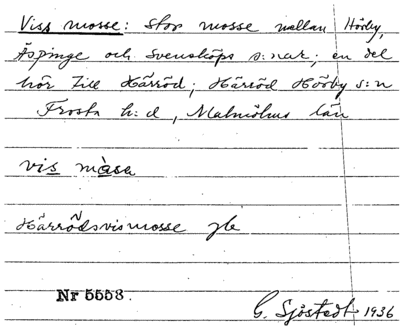 Viss mosse: Stor mosse mellan Hörby,
Äspinge och Svensköps s:nar; en del
hör till Härröd; Härröd Hörby s:n
Frosta h:d, Malmöhus län
vis màsa
Härrödsvismosse gle
Nr 5558.
G. Sjöstedt 1936